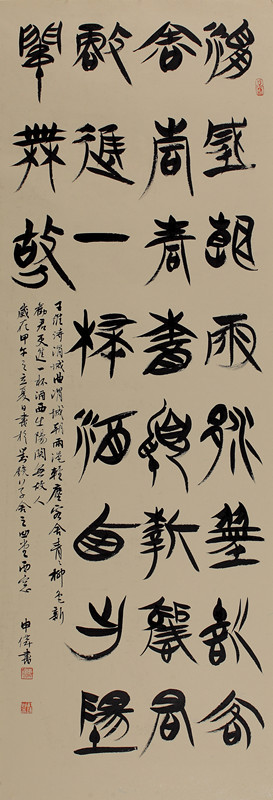 渭城朝雨浥輕塵客
舍青青柳色新勸君
更進一杯酒西出陽
關無故
王維詩渭城曲渭城朝雨浥輕塵客舍青々柳色新
勸君更進一杯酒西出陽關無故人
歲在甲午之立夏日書於
書